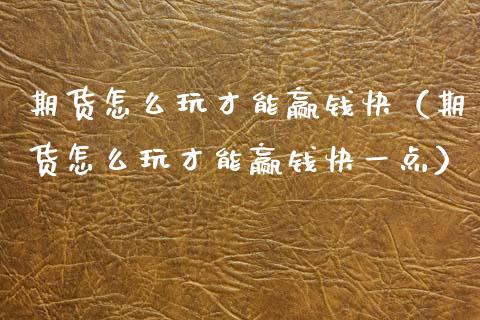 期货怎么玩才能赢钱快（期
货怎么玩才能赢钱快一点）